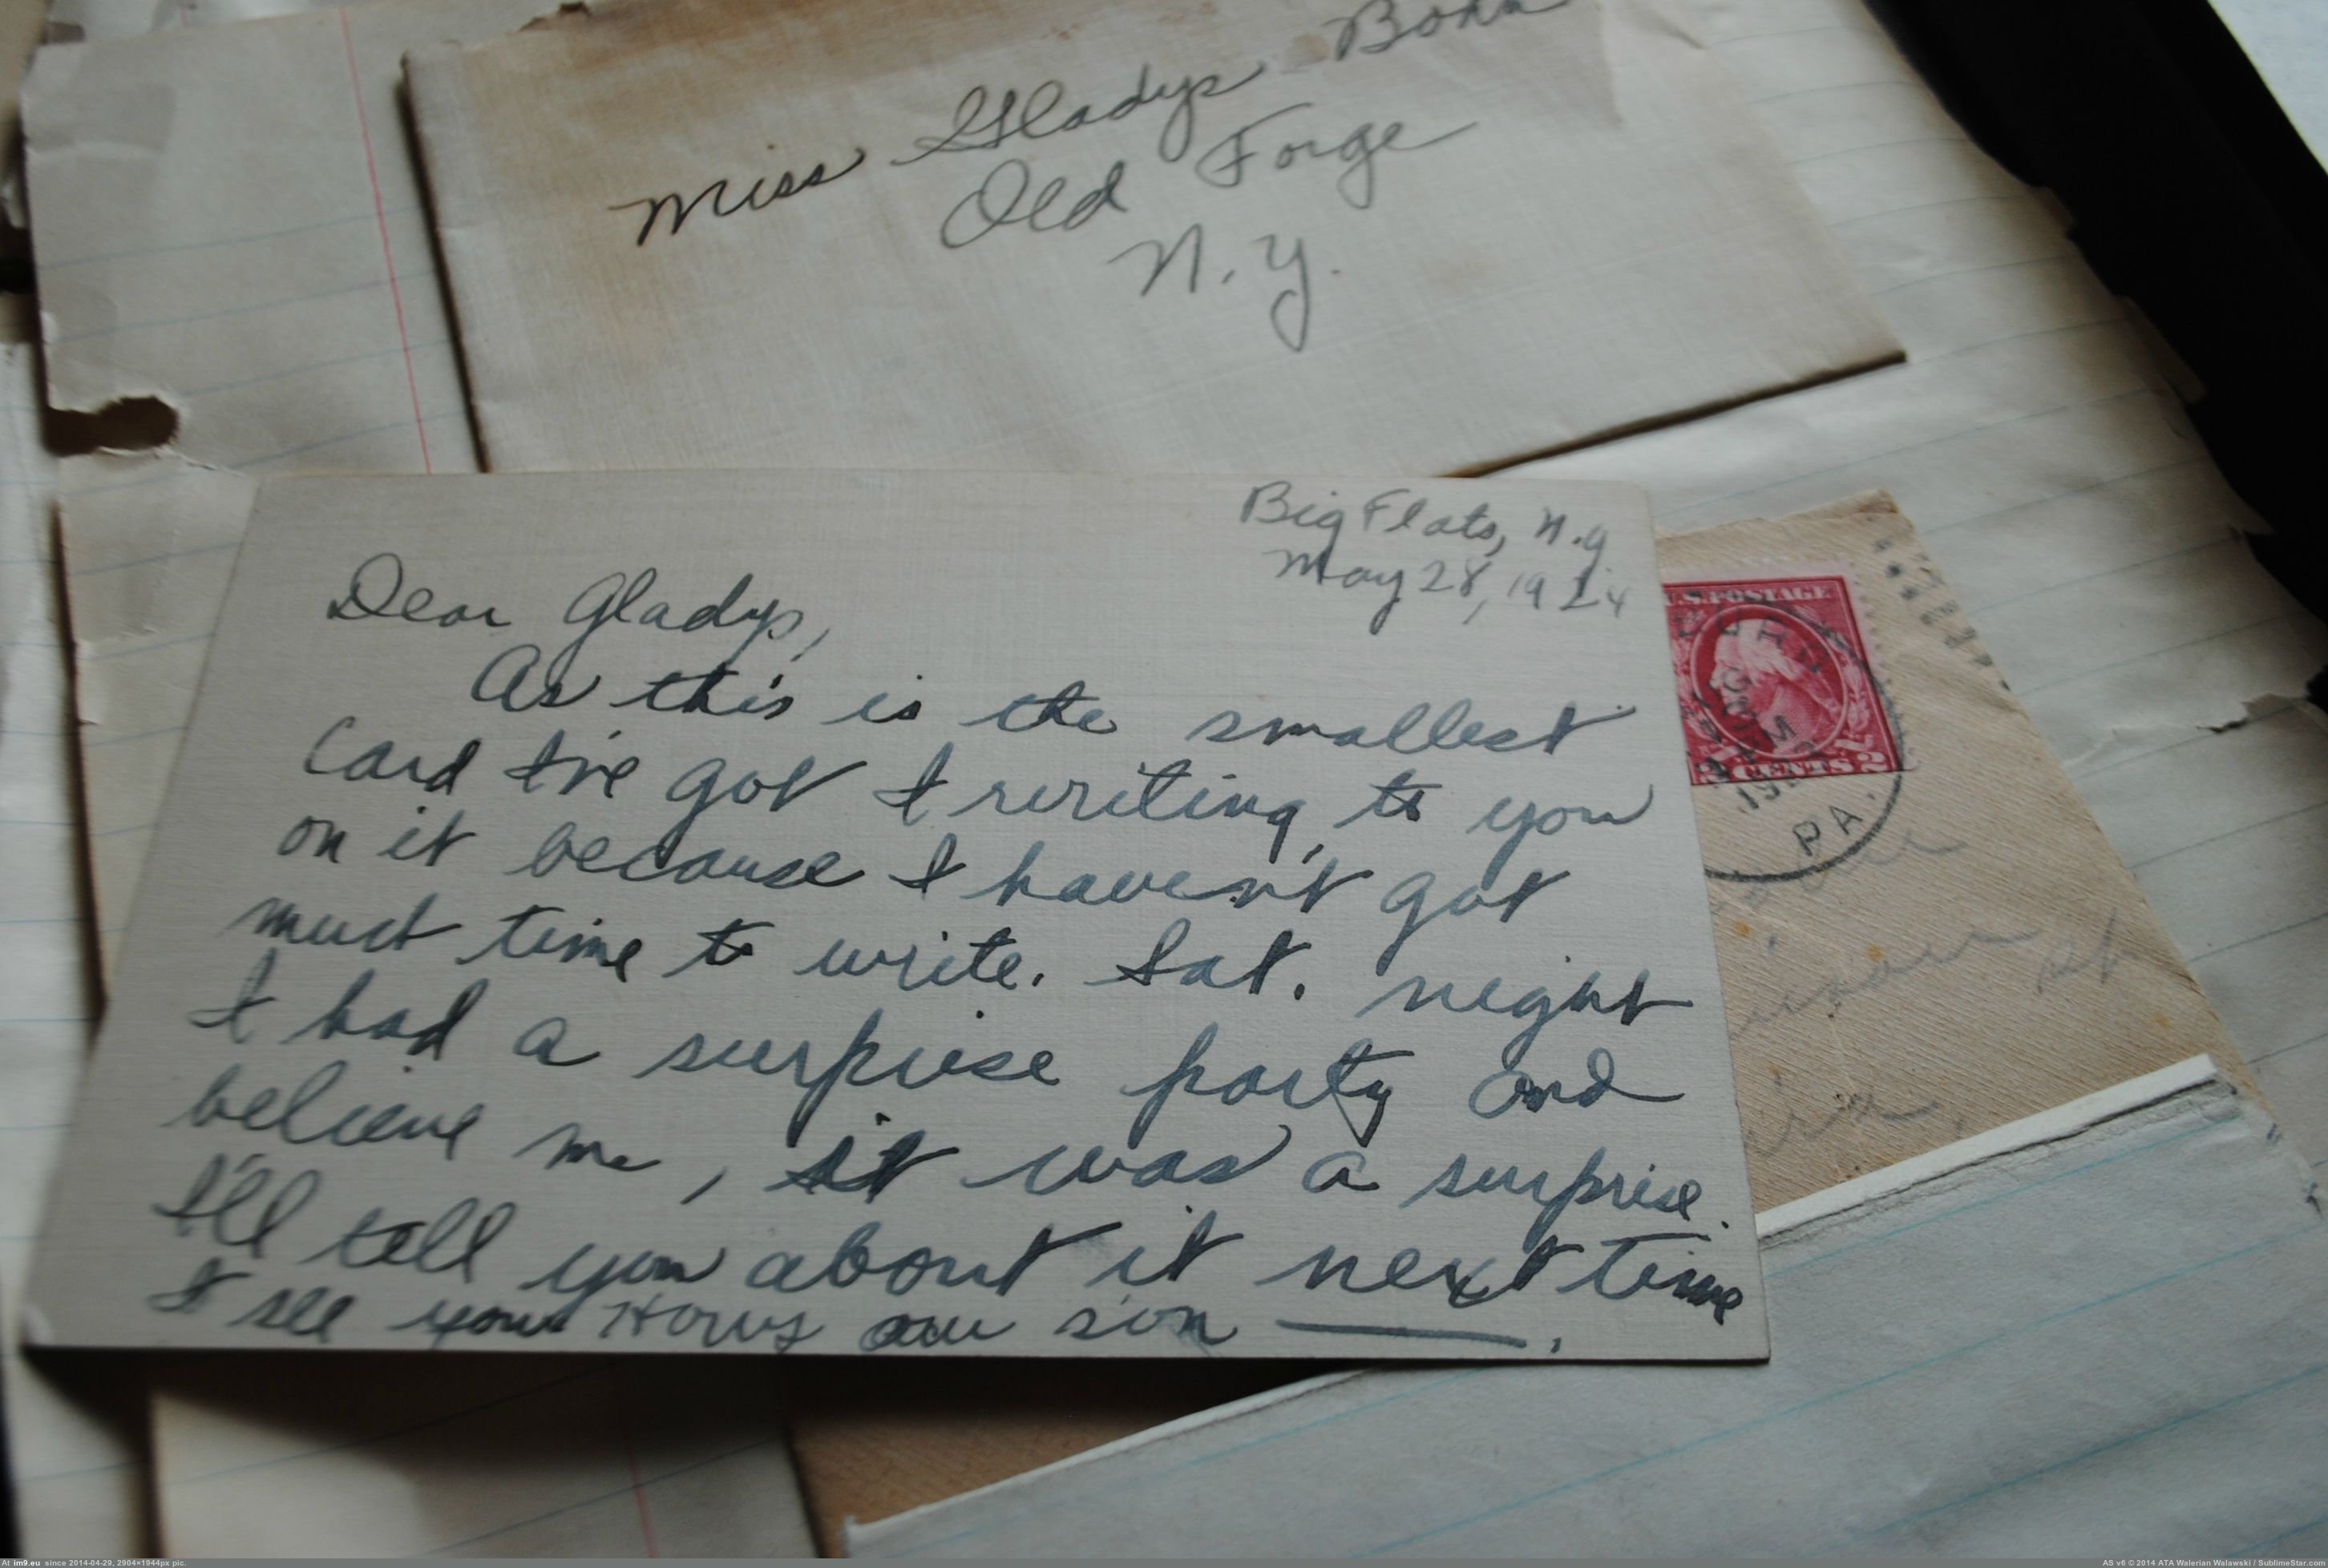 Miss Gladys
Old Forge
N.Y.
Big Flats, N.Y
May 28, 1924
Dear Gladys,
As this is the smallest
Card I've got I writing to you
on it because I haven't got
much time to write. Sat. night
I had a surprise party and
believe me, it was a surprise.
I'll tell you about it next time
I see you
U.S. POSTAGE
2 CENTS 2
PA.
At im9.eu since 2014-04-29, 2904×1944px pic.
AS v6 © 2014 ATA Walerian Walawski / SublimeStar.com